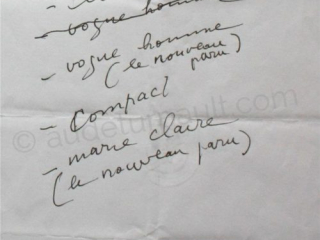 - vogue homme
- vogue homme
(le nouveau
paru)
- Compacl
- marie claire
(le nouveau paru)
© audetumault.com